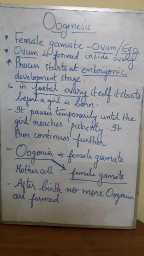 Oogenesis
* Female gamate - Ovum/Egg
* Ovum is formed inside ovary
* Process starts at embryonic
development stage
- in foetal ovary itself it starts
before a girl is born.
- It pauses temporarily until the
girl reaches puberty. It
then continues further
- Oogonia → female gamate
Mother cell female gamete
- After birth no more Oogonia
are formed